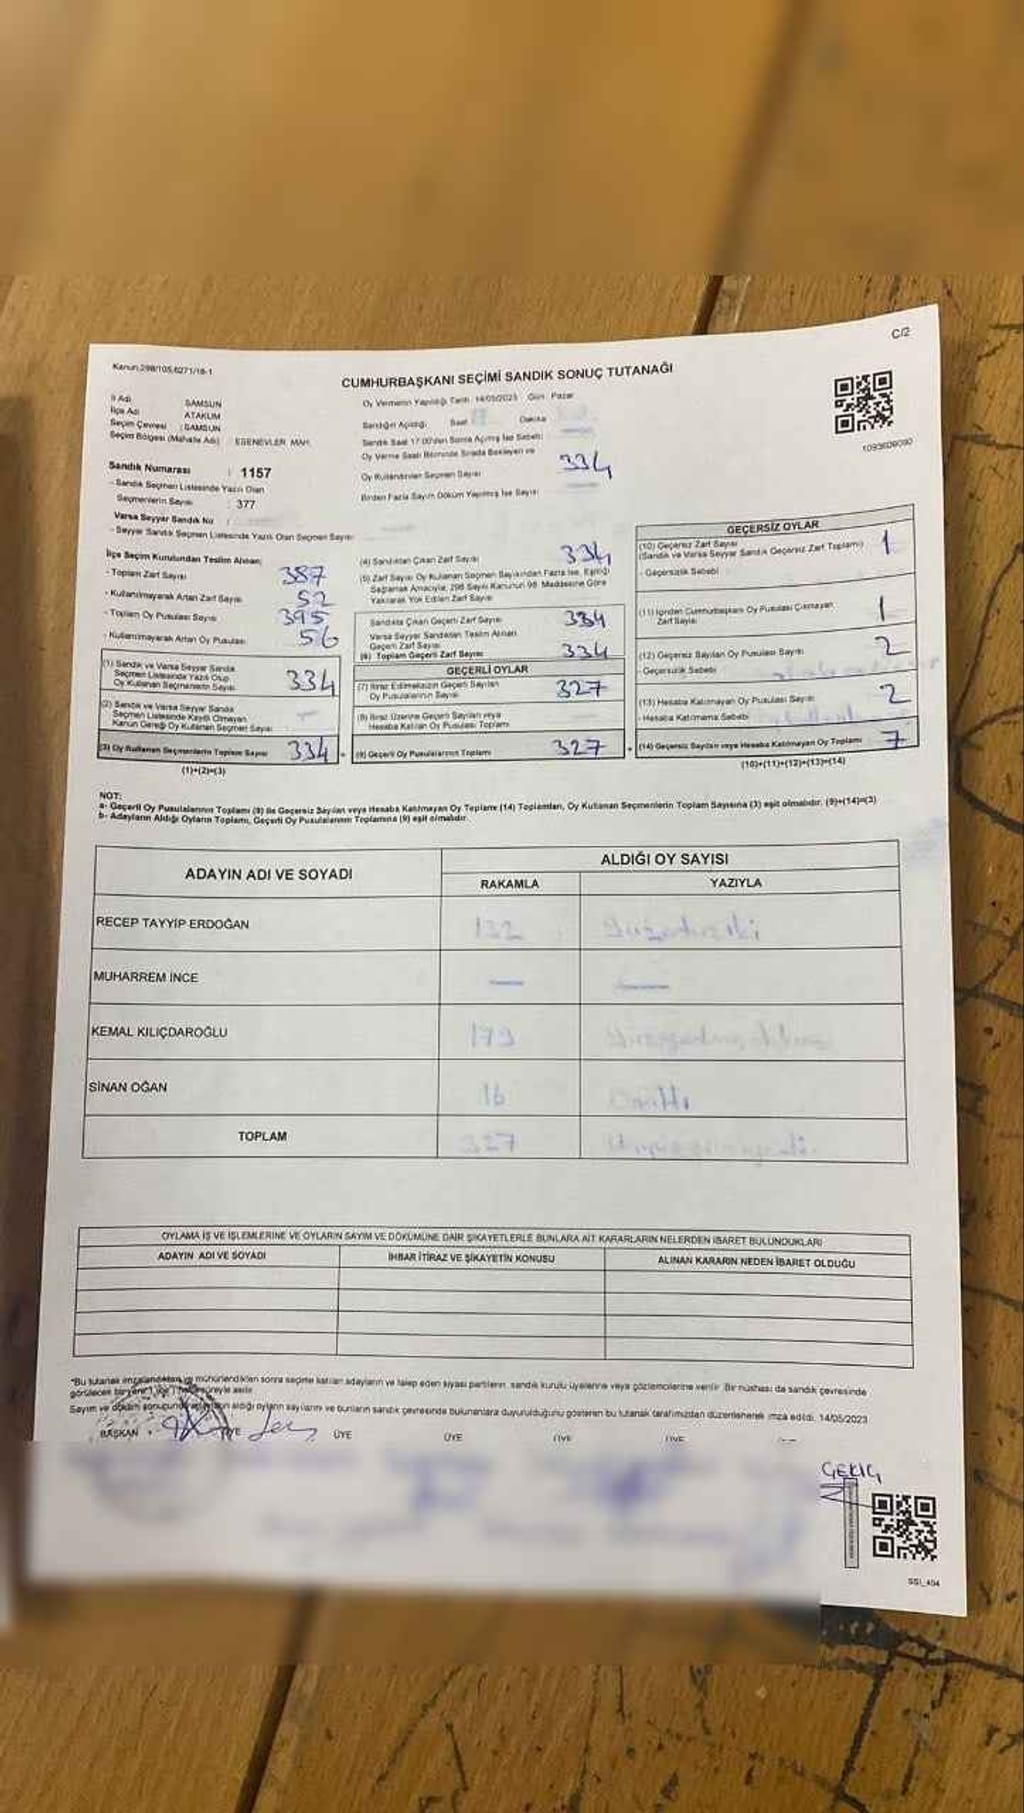 C/2
Kanun:298/105,6271/18-1
CUMHURBAŞKANI SEÇİMİ SANDIK SONUÇ TUTANAĞI
İl Adı SAMSUN
İlçe Adı ATAKUM
Seçim Çevresi : SAMSUN
Seçim Bölgesi (Mahalle Adı) ESENEVLER MAH.
Sandık Numarası : 1157
- Sandık Seçmen Listesinde Yazılı Olan
Seçmenlerin Sayısı : 377
Varsa Seyyar Sandık No :
- Seyyar Sandık Seçmen Listesinde Yazılı Olan Seçmen Sayısı
Oy Vermenin Yapıldığı Tarih 14/05/2023 Gün: Pazar
Sandığın Açıldığı Saat Dakika
Sandık Saat 17:00'den Sonra Açılmış İse Sebebi:
Oy Verme Saati Bitiminde Sırada Bekleyen ve
Oy Kullandırılan Seçmen Sayısı 334
Birden Fazla Sayım Döküm Yapılmış İse Sayısı
1093608090
İlçe Seçim Kurulundan Teslim Alınan;
- Toplam Zarf Sayısı 387
- Kullanılmayarak Artan Zarf Sayısı 52
- Toplam Oy Pusulası Sayısı 395
- Kullanılmayarak Artan Oy Pusulası 56
(1) Sandık ve Varsa Seyyar Sandık
Seçmen Listesinde Yazılı Olup
Oy Kullanan Seçmenlerin Sayısı 334
(2) Sandık ve Varsa Seyyar Sandık
Seçmen Listesinde Kayıtlı Olmayan
Kanun Gereği Oy Kullanan Seçmen Sayısı –
(3) Oy Kullanan Seçmenlerin Toplam Sayısı 334 =
(1)+(2)=(3)
(4) Sandıktan Çıkan Zarf Sayısı 334
(5) Zarf Sayısı Oy Kullanan Seçmen Sayısından Fazla İse, Eşitliği
Sağlamak Amacıyla, 298 Sayılı Kanunun 98. Maddesine Göre
Yakılarak Yok Edilen Zarf Sayısı
Sandıkta Çıkan Geçerli Zarf Sayısı 334
Varsa Seyyar Sandıktan Teslim Alınan
Geçerli Zarf Sayısı
(6) Toplam Geçerli Zarf Sayısı 334
GEÇERLİ OYLAR
(7) İtiraz Edilmeksizin Geçerli Sayılan
Oy Pusulalarının Sayısı 327
(8) İtiraz Üzerine Geçerli Sayılan veya
Hesaba Katılan Oy Pusulası Toplamı
(9) Geçerli Oy Pusulalarının Toplamı 327 +
GEÇERSİZ OYLAR
(10) Geçersiz Zarf Sayısı
(Sandık ve Varsa Seyyar Sandık Geçersiz Zarf Toplamı) 1
- Geçersizlik Sebebi
(11) İçinden Cumhurbaşkanı Oy Pusulası Çıkmayan
Zarf Sayısı 1
(12) Geçersiz Sayılan Oy Pusulası Sayısı 2
- Geçersizlik Sebebi
(13) Hesaba Katılmayan Oy Pusulası Sayısı 2
- Hesaba Katılmama Sebebi
(14) Geçersiz Sayılan veya Hesaba Katılmayan Oy Toplamı 7
(10)+(11)+(12)+(13)=(14)
NOT:
a- Geçerli Oy Pusulalarının Toplamı (9) ile Geçersiz Sayılan veya Hesaba Katılmayan Oy Toplamı (14) Toplamları, Oy Kullanan Seçmenlerin Toplam Sayısına (3) eşit olmalıdır. (9)+(14)=(3)
b- Adayların Aldığı Oyların Toplamı, Geçerli Oy Pusulalarının Toplamına (9) eşit olmalıdır.
ADAYIN ADI VE SOYADI ALDIĞI OY SAYISI
RAKAMLA YAZIYLA
RECEP TAYYİP ERDOĞAN 132
MUHARREM İNCE — —
KEMAL KILIÇDAROĞLU 179
SİNAN OĞAN 16 Onaltı
TOPLAM 327
OYLAMA İŞ VE İŞLEMLERİNE VE OYLARIN SAYIM VE DÖKÜMÜNE DAİR ŞİKAYETLERLE BUNLARA AİT KARARLARIN NELERDEN İBARET BULUNDUKLARI
ADAYIN ADI VE SOYADI İHBAR İTİRAZ VE ŞİKAYETİN KONUSU ALINAN KARARIN NEDEN İBARET OLDUĞU
"Bu tutanak imzalandıktan ve mühürlendikten sonra seçime katılan adayların ve talep eden siyasi partilerin, sandık kurulu üyelerine veya gözlemcilerine verilir. Bir nüshası da sandık çevresinde
görülecek bir yere süreyle asılır.
Sayım ve döküm sonucunda adayların aldığı oyların sayılarını ve bunların sandık çevresinde bulunanlara duyurulduğunu gösteren bu tutanak tarafımızdan düzenlenerek imza edildi. 14/05/2023
BAŞKAN ÜYE ÜYE ÜYE ÜYE ÜYE
GEKİÇ
SSI_404